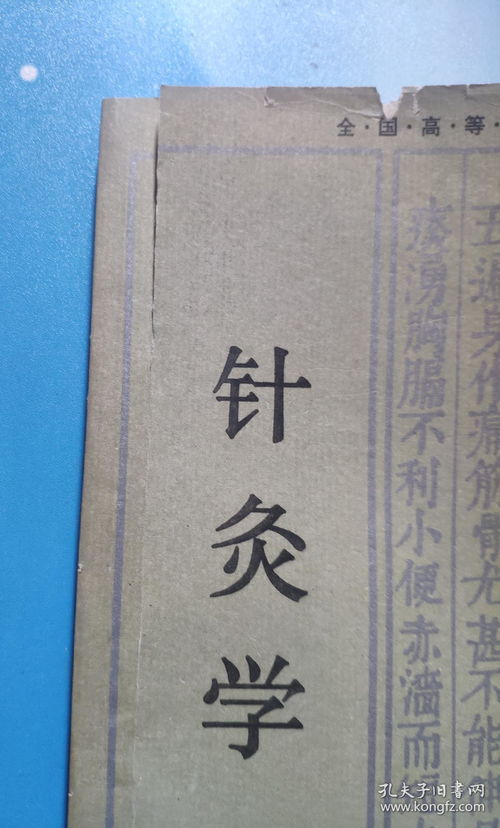 全·国·高·等·
针灸学
五遍身作痛筋骨尤甚不能
痰涌胸膈不利小便赤濇而
孔夫子旧书网
www.kongfz.com